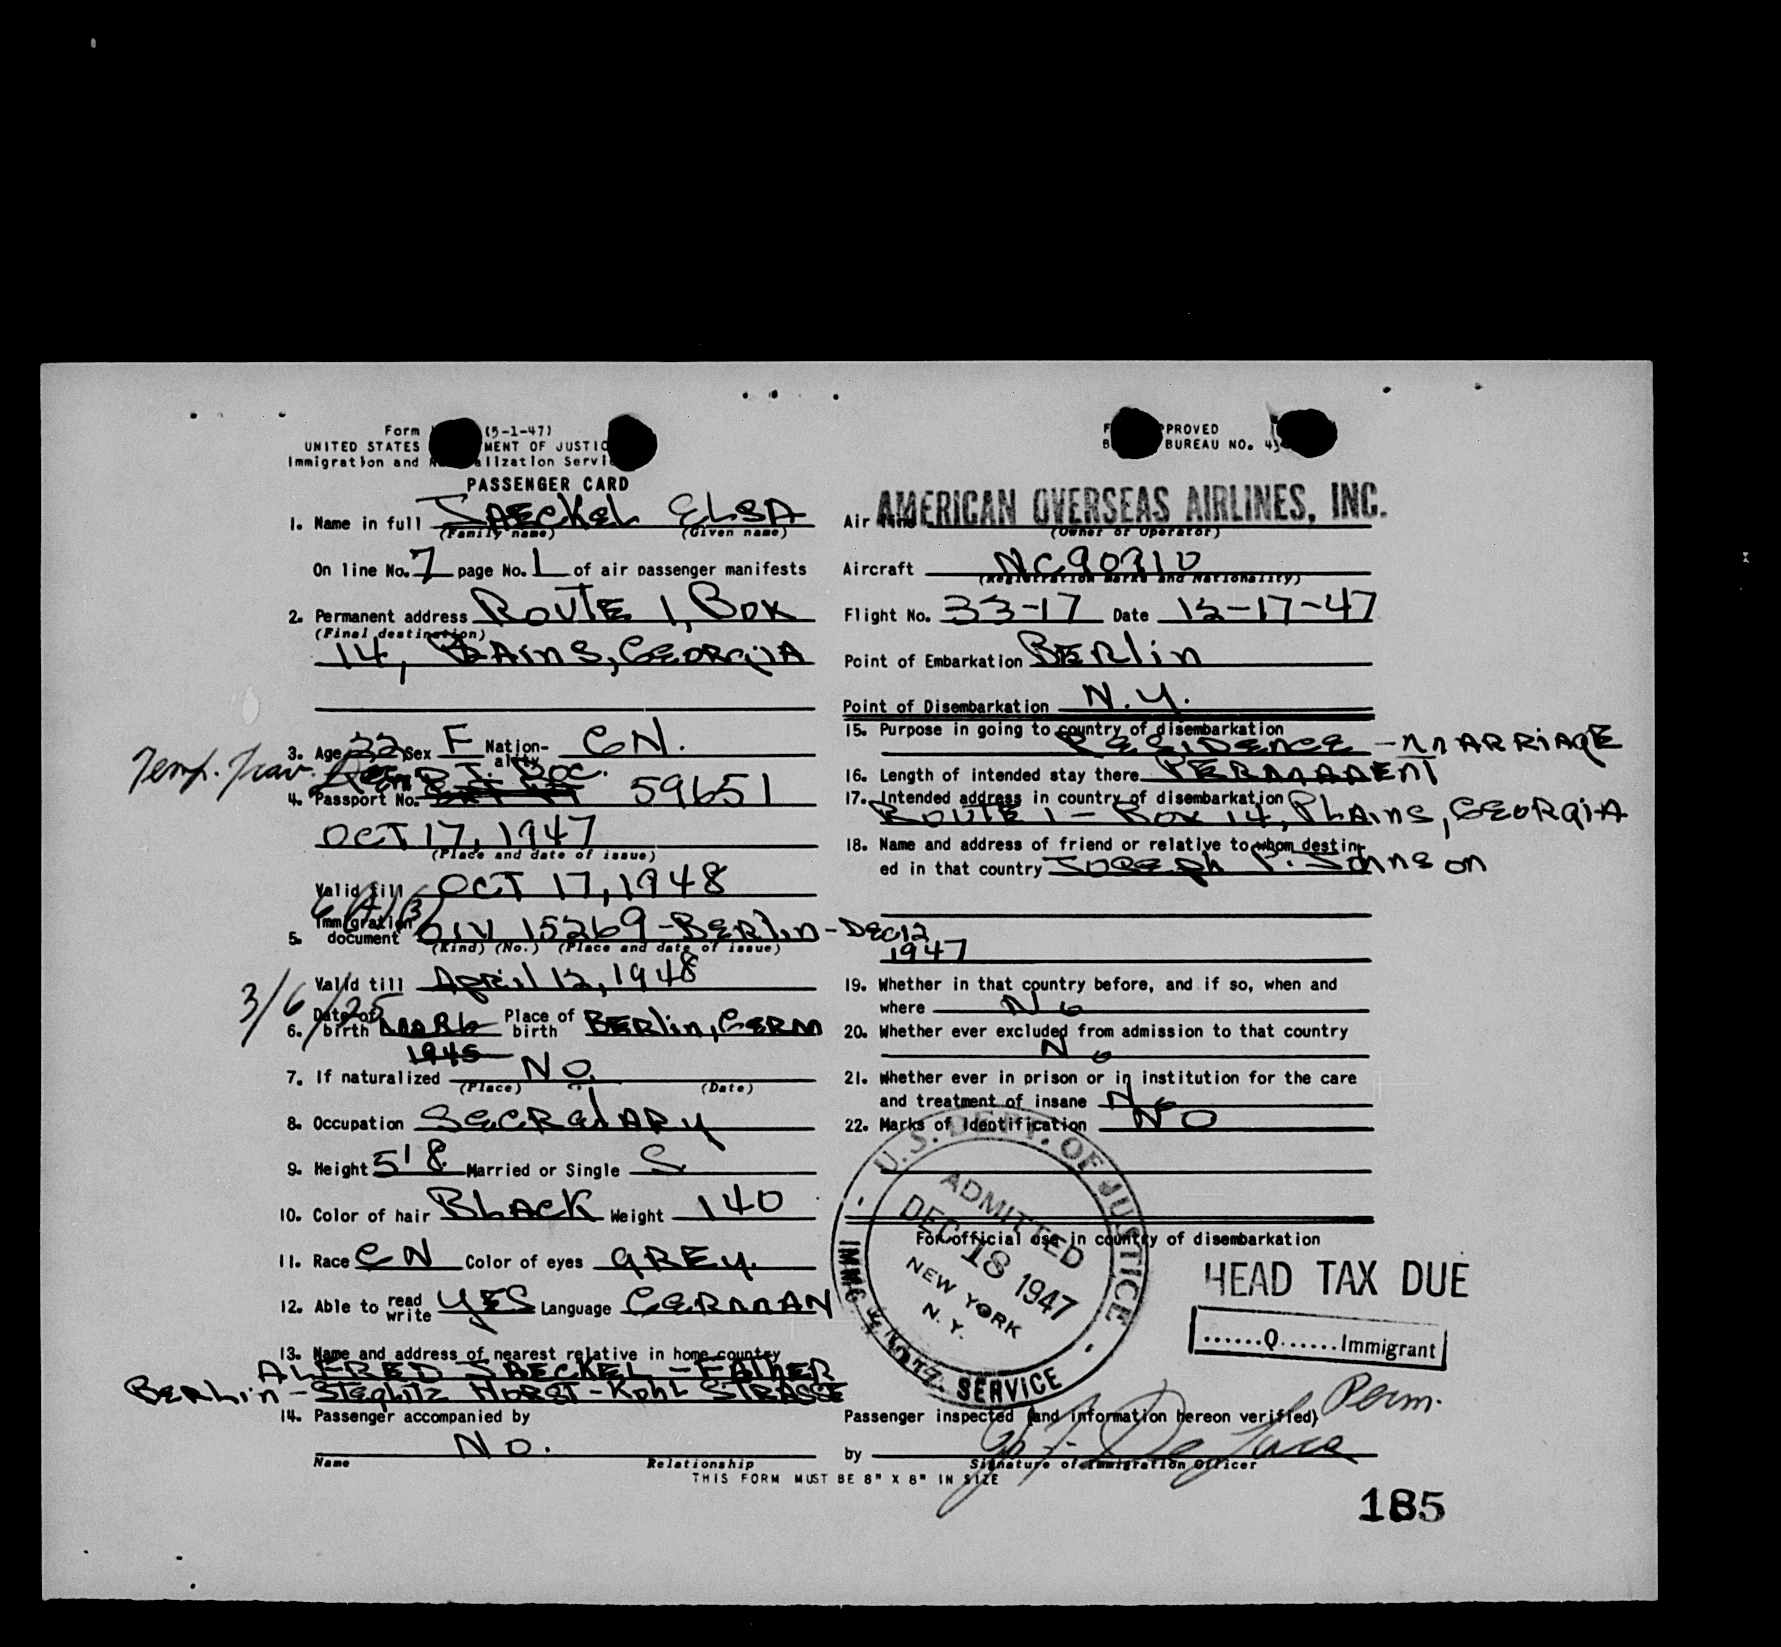 Form (5-1-47)
UNITED STATES MENT OF JUSTIC
Immigration and alization Servi
PASSENGER CARD
PPROVED
BUREAU NO. 43
1. Name in full JAECKEL ELSA
(Family name) (Given name)
On line No. 7 page No. 1 of air passenger manifests
2. Permanent address ROUTE 1, BOX
(Final destination)
14, PLAINS, GEORGIA
3. Age 22 Sex F Nation-ality GN.
Temp. Trav. Doc.
4. Passport No. 59651
OCT 17, 1947
(Place and date of issue)
Valid till OCT 17, 1948
5. Immigration document GIV 15269-BERLIN-DEC 12
1947
(Kind) (No.) (Place and date of issue)
Valid till APRIL 12, 1948
3/6/25
6. Date of birth MAR 6 Place of birth BERLIN, GERM
1945
7. If naturalized NO.
(Place) (Date)
8. Occupation SECRETARY
9. Height 5'8 Married or Single S
10. Color of hair BLACK Weight 140
11. Race GN Color of eyes GREY.
12. Able to read write YES Language GERMAN
13. Name and address of nearest relative in home country
ALFRED JAECKEL - FATHER
BERLIN - STEGLITZ HORST-KOHL STRASSE
14. Passenger accompanied by
NO.
Name Relationship
THIS FORM MUST BE 8" X 8" IN SIZE
Air AMERICAN OVERSEAS AIRLINES, INC.
(Owner or Operator)
Aircraft NC90910
(Registration Marks and Nationality)
Flight No. 33-17 Date 12-17-47
Point of Embarkation BERLIN
Point of Disembarkation N.Y.
15. Purpose in going to country of disembarkation
RESIDENCE - MARRIAGE
16. Length of intended stay there PERMANENT
17. Intended address in country of disembarkation
ROUTE 1 - BOX 14, PLAINS, GEORGIA
18. Name and address of friend or relative to whom destin-
ed in that country JOSEPH P. JOHNSON
19. Whether in that country before, and if so, when and
where NO
20. Whether ever excluded from admission to that country
NO
21. Whether ever in prison or in institution for the care
and treatment of insane NO
22. Marks of Identification NO
U.S. DEPT. OF JUSTICE
ADMITTED
DEC 18 1947
NEW YORK
N. Y.
IMMIG. & NATZ. SERVICE
For official use in country of disembarkation
HEAD TAX DUE
......Q......Immigrant
Perm.
Passenger inspected (and information hereon verified)
by
Signature of Immigration Officer
185